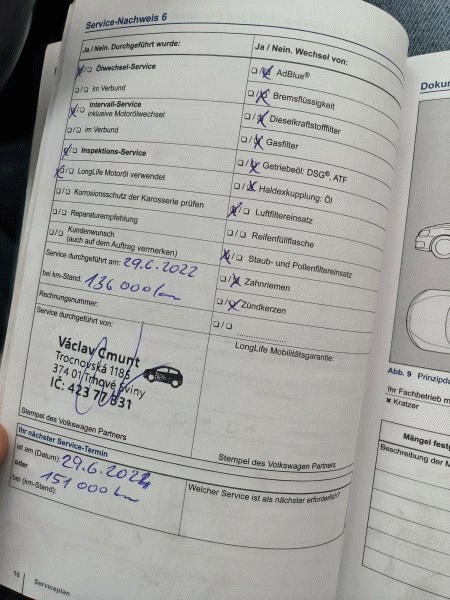 Service-Nachweis 6
Ja / Nein. Durchgeführt wurde:
Ölwechsel-Service
im Verbund
Intervall-Service
inklusive Motorölwechsel
im Verbund
Inspektions-Service
LongLife Motoröl verwendet
Korrosionsschutz der Karosserie prüfen
Reparaturempfehlung
Kundenwunsch
(auch auf dem Auftrag vermerken)
Service durchgeführt am: 29.6.2022
bei km-Stand: 136 000 km
Rechnungsnummer:
Service durchgeführt von:
Václav Cmunt
Trocnovská 1185
374 01 Trhové Sviny
IČ: 423 77 831
Stempel des Volkswagen Partners
Ihr nächster Service-Termin
ist am (Datum): 29.6.2024
oder
bei (km-Stand): 151 000 km
16 Serviceplan
Ja / Nein. Wechsel von:
AdBlue®
Bremsflüssigkeit
Dieselkraftstofffilter
Gasfilter
Getriebeöl: DSG®, ATF
Haldexkupplung: Öl
Luftfiltereinsatz
Reifenfüllflasche
Staub- und Pollenfiltereinsatz
Zahnriemen
Zündkerzen
LongLife Mobilitätsgarantie:
Stempel des Volkswagen Partners
Welcher Service ist als nächster erforderlich?
Dokum
Abb. 9 Prinzipda
Ihr Fachbetrieb m
Kratzer
Mängel festg
Beschreibung der M